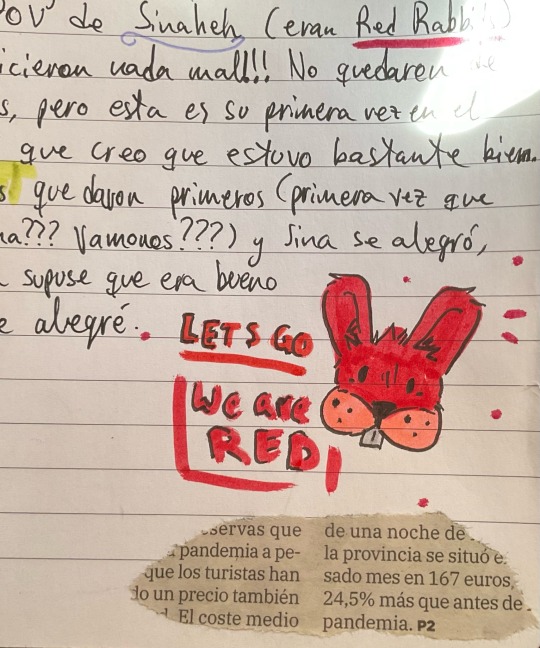 POV de Sinaheh (eran Red Rabbits)
icieron nada mal!!! No quedaron
s, pero esta es su primera vez en el
que creo que estuvo bastante bien.
s que daron primeros (primera vez que
na??? Vamonos???) y Sina se alegró,
supuse que era bueno
e alegré.
LETS GO
We are
RED!
servas que
pandemia a pe-
que los turistas han
do un precio también
El coste medio
de una noche de
la provincia se situó e
sado mes en 167 euros,
24,5% más que antes de
pandemia. P2